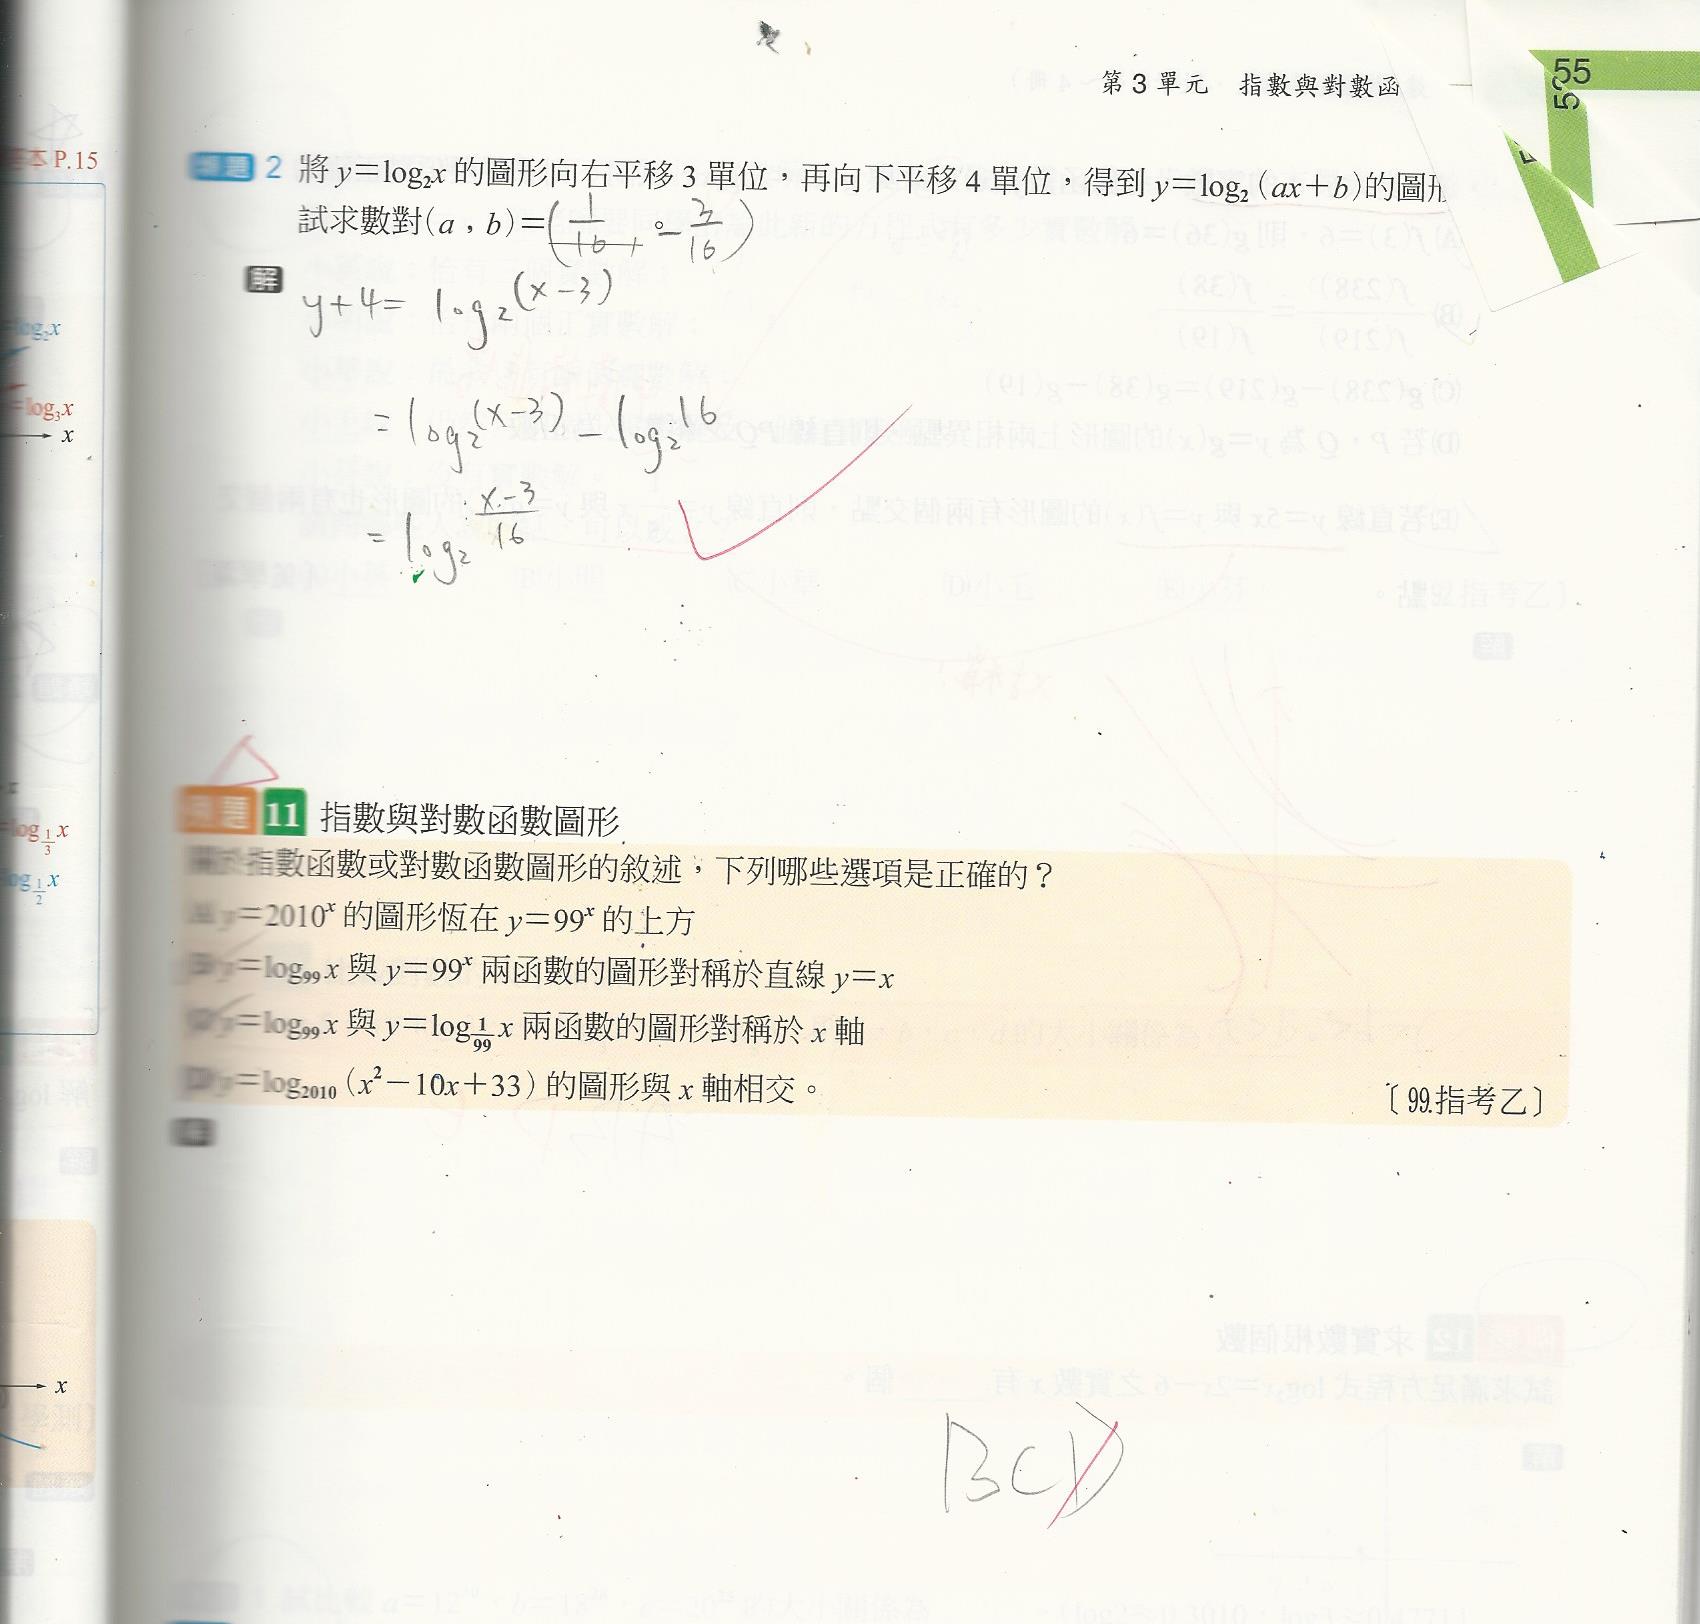 第 3 單元　指數與對數函
55
2 將 y＝log₂x 的圖形向右平移 3 單位，再向下平移 4 單位，得到 y＝log₂ (ax＋b)的圖形
試求數對(a，b)＝(1/16，-3/16)
解
y+4= log₂(x-3)
= log₂(x-3) - log₂16
= log₂ (x-3)/16
例題 11 指數與對數函數圖形
關於指數函數或對數函數圖形的敘述，下列哪些選項是正確的？
y＝2010ˣ 的圖形恆在 y＝99ˣ 的上方
y＝log₉₉ x 與 y＝99ˣ 兩函數的圖形對稱於直線 y＝x
y＝log₉₉ x 與 y＝log_(1/99) x 兩函數的圖形對稱於 x 軸
y＝log₂₀₁₀ (x²－10x＋33) 的圖形與 x 軸相交。
〔99.指考乙〕
BCD
本 P.15
log₂x
＝log₃x
x
log_(1/3) x
log_(1/2) x
x